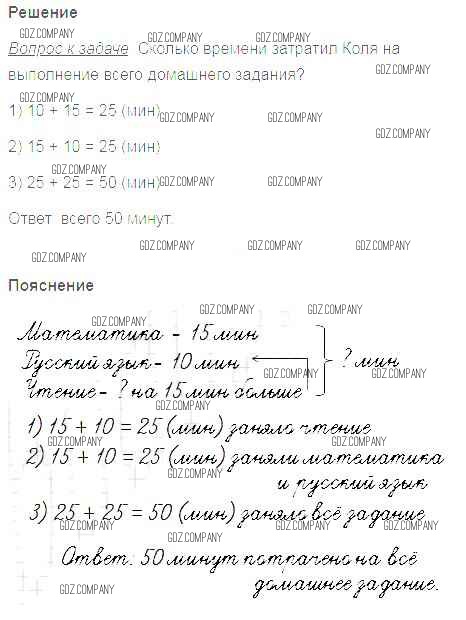 Решение
Вопрос к задаче Сколько времени затратил Коля на
выполнение всего домашнего задания?
1) 10 + 15 = 25 (мин)
2) 15 + 10 = 25 (мин)
3) 25 + 25 = 50 (мин)
Ответ всего 50 минут.
Пояснение
Математика - 15 мин
Русский язык - 10 мин
? мин
Чтение - ? на 15 мин больше
1) 15 + 10 = 25 (мин) заняло чтение
2) 15 + 10 = 25 (мин) заняли математика
и русский язык
3) 25 + 25 = 50 (мин) заняло всё задание
Ответ: 50 минут потрачено на всё
домашнее задание.
GDZ.COMPANY